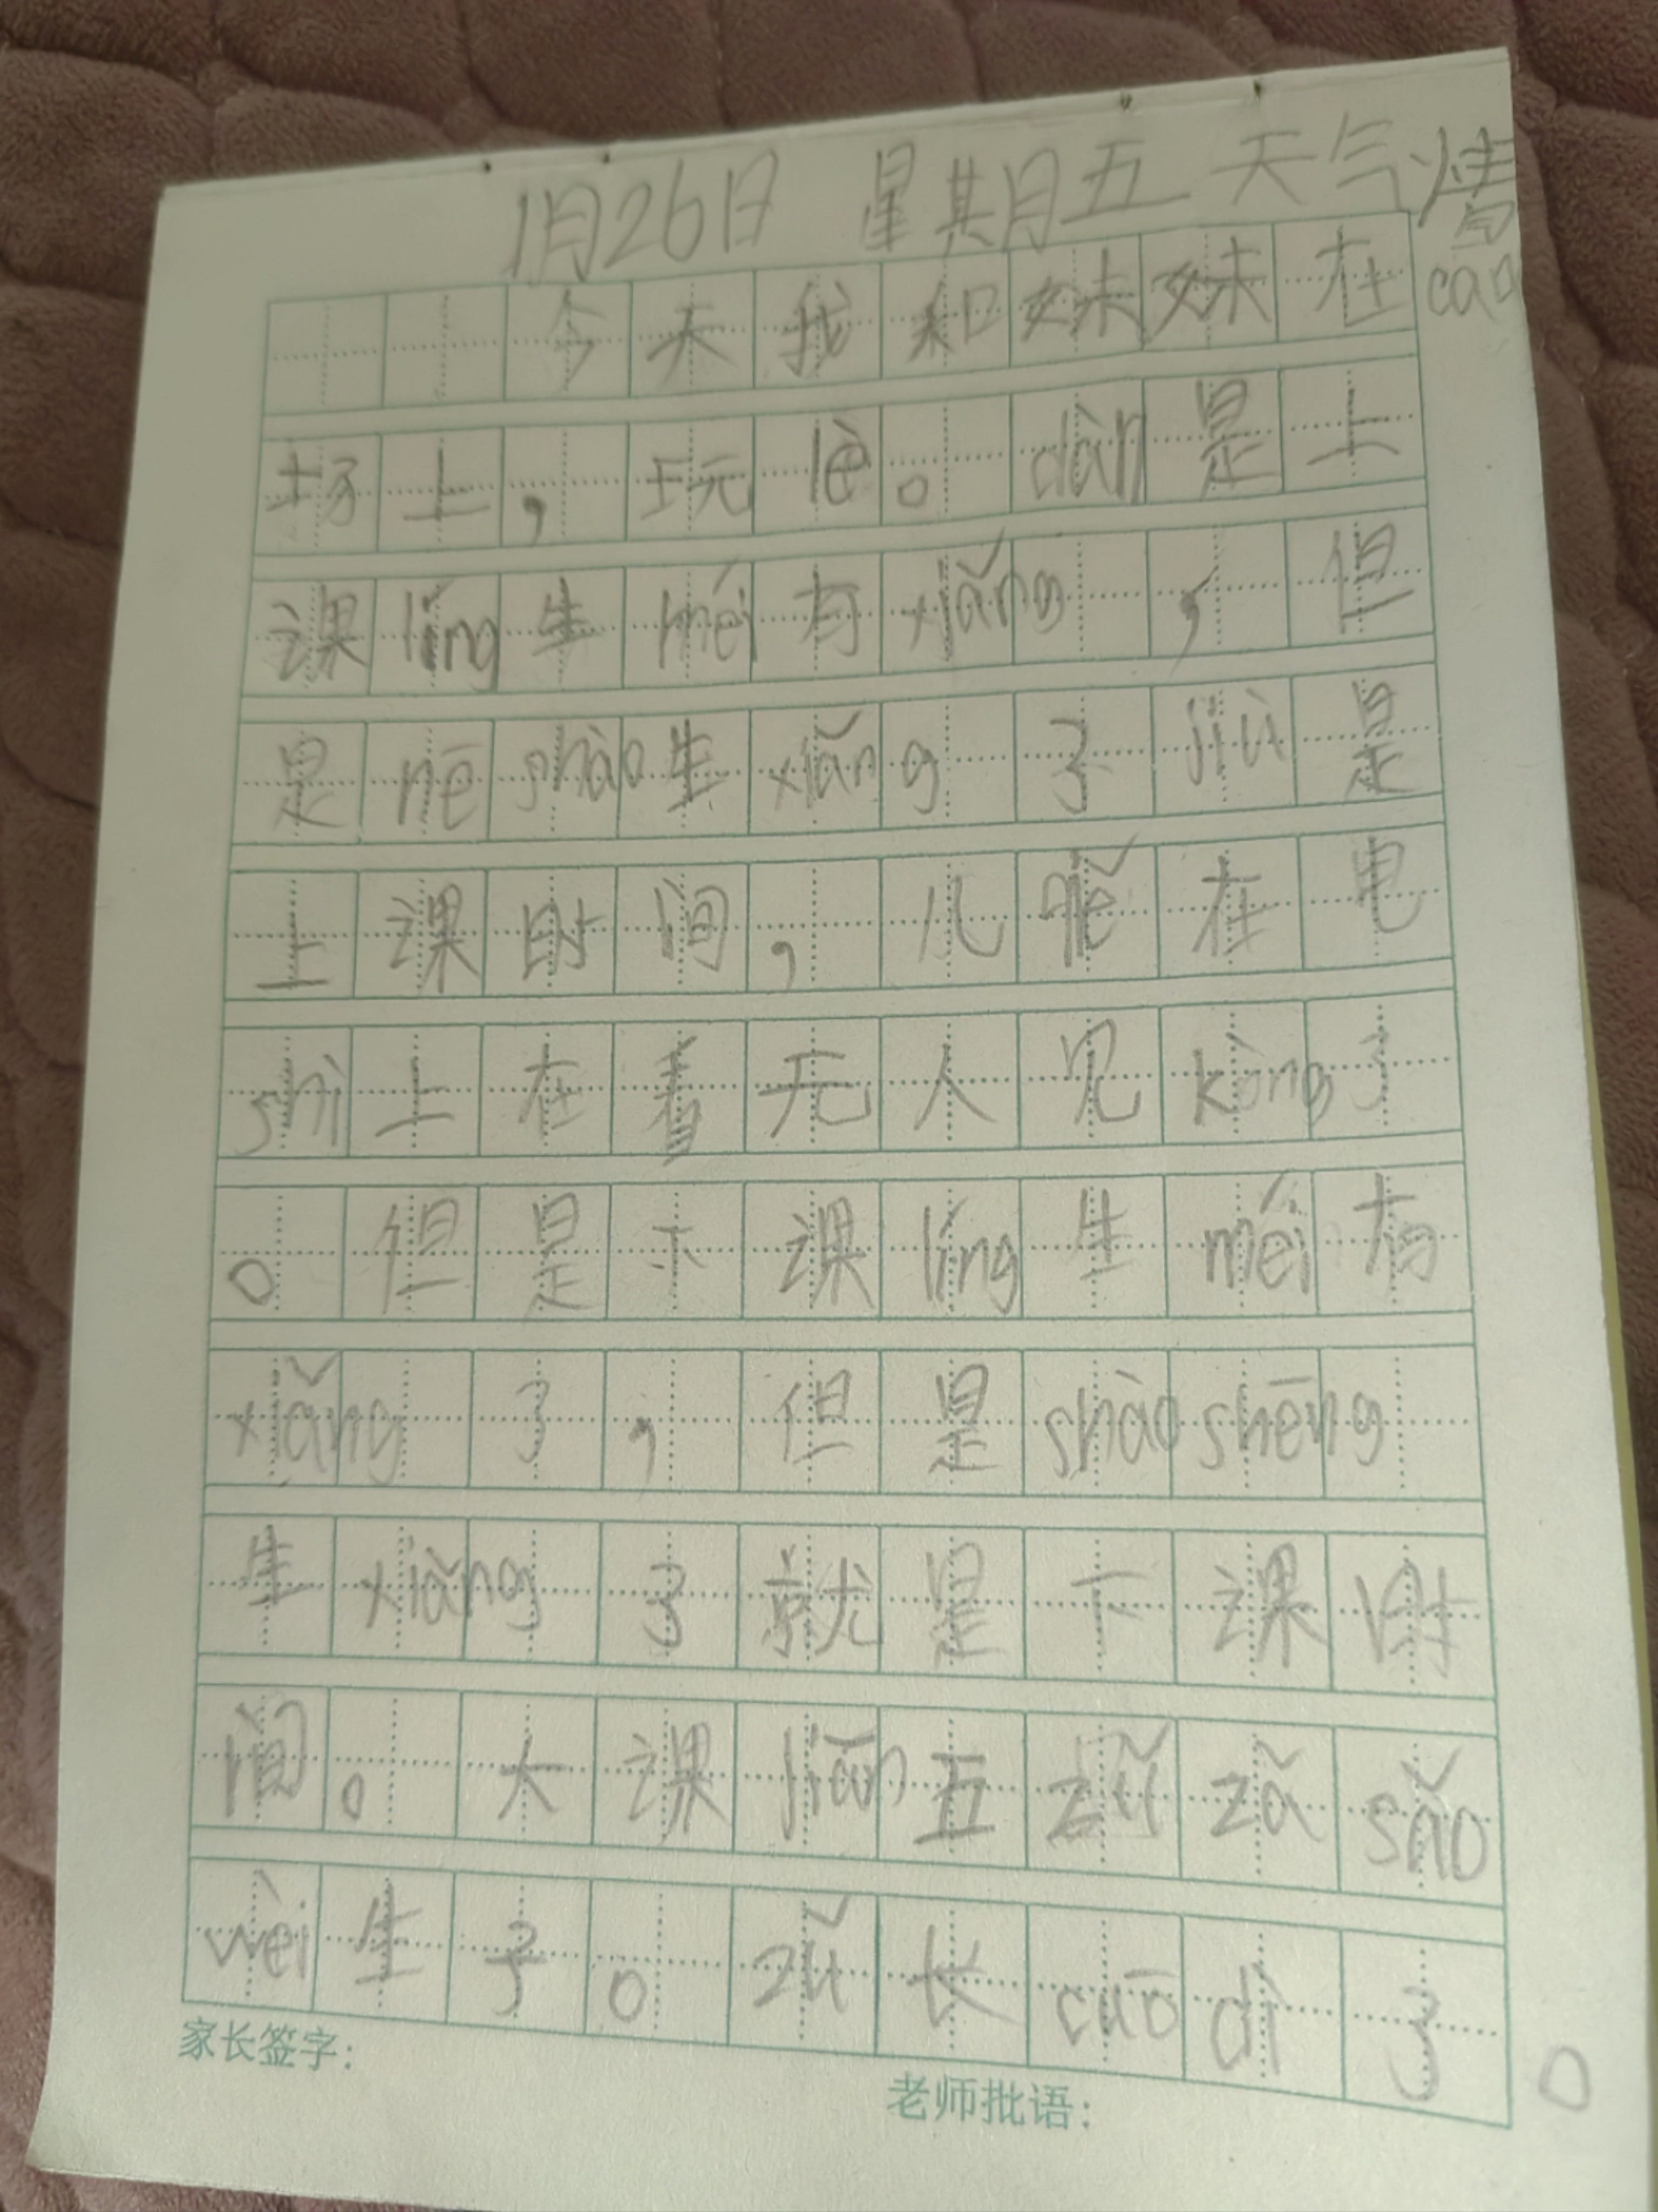 1月26日 星其月五 天气情
今天我和妹妹在cao
场上，玩lè。dàn是上
课líng生méi有xiǎng，但
是nē shào生xiǎng了jiù是
上课时间，儿 在电
shì上在看无人见kòng了
。但是下课líng生méi有
xiǎng了，但是shào shēng
生xiǎng了就是下课时
间。大课jiān五zǔ zǎ sǎo
wèi生了。zǔ长cuō dì了。
家长签字：
老师批语：